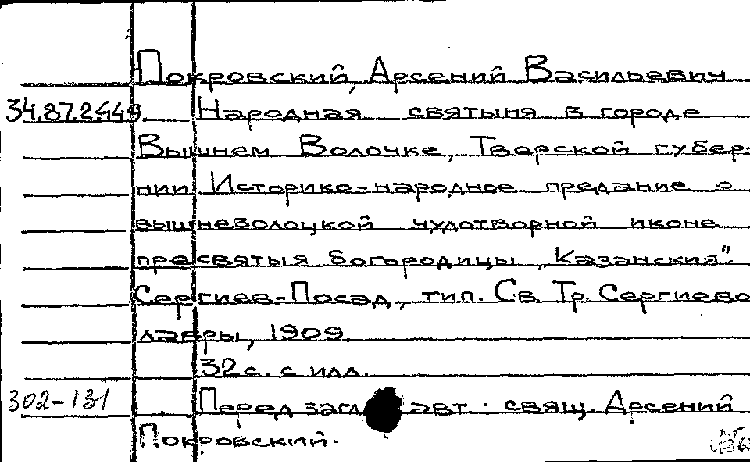 Покровский, Арсений Васильевич
34.87.2449. Народная святыня в городе
Вышнем Волочке, Тверской губер-
нии Историко-народное предание о
вышневолоцкой чудотворной иконе
пресвятыя богородицы „Казанския".
Сергиев-Посад, тип. Св. Тр. Сергиево
лавры, 1909
32 с. с илл.
302-131 Перед загл. авт.: свящ. Арсений
Покровский.